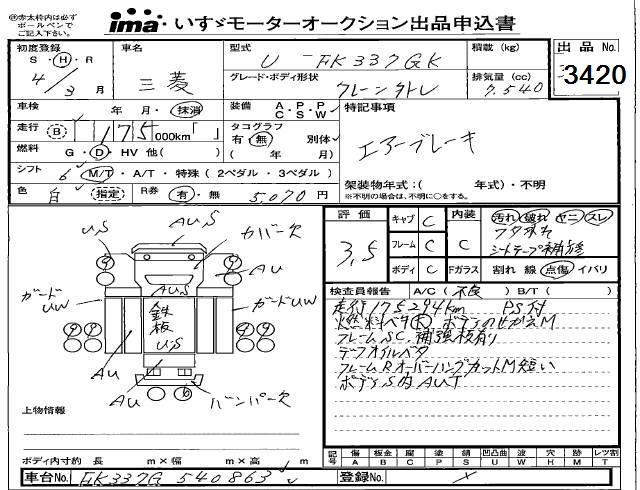 赤太枠内は必ず
ボールペンで
ご記入下さい。
ima いすゞモーターオークション出品申込書
初度登録 車名 型式 積載 (kg) 出品No.
S・H・R U-FK337GK
4/3月 三菱 グレード・ボディ形状 排気量 (cc) 3420
クレーン付トレ 7,540
車検 年・月・抹消 装備 A・P・P C・S・W 特記事項
走行 B 175 000km「 」 タコグラフ
有・無 別体 エアーブレーキ
燃料 G・D・HV 他( ) ( 年 月)
シフト 6 M/T・A/T・特殊(2ペダル・3ペダル) 架装物年式:( 年式)・不明
色 白 指定 R券 有・無 5,070円 ※不明の場合は、不明に○をする。
評価 キャブ C 内装 汚れ 破れ ヤニ スレ
3.5 フレーム C C フタ切れ
シートテープ補修
ボディ C Fガラス 割れ 線 点傷 イバリ
検査員報告 A/C(不良) B/T( )
走行175294km PS付
フレームSC 補強板有り
デフオイルベタ
フレームRオーバーハングカットM短い
ボディS内AUT
US AUS カバー欠
AU
AUS
ガードUW ガードUW
鉄板
US
AU AU
AU バンパー欠
上物情報
ボディ内寸約 長 m×幅 m×高 m
記号 傷 A 板金 B 腐 C 塗 P 錆 S 凹凸曲 U 波 W 穴 H 跡 M レツ割 T
車台No. FK337G 540863 登録No.